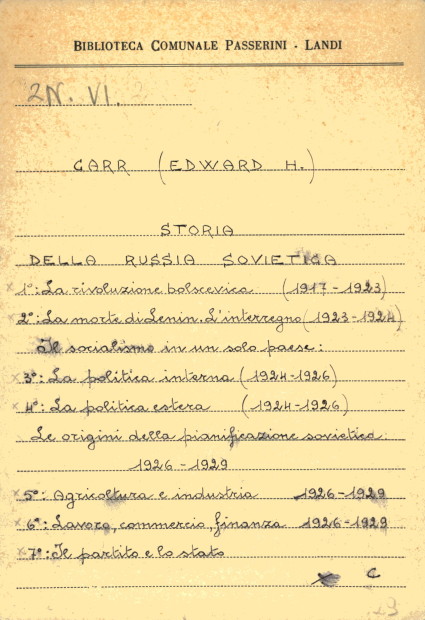 BIBLIOTECA COMUNALE PASSERINI - LANDI
2N. VI.
CARR (EDWARD H.)
STORIA
DELLA RUSSIA SOVIETICA
1°: La rivoluzione bolscevica (1917-1923)
2°: La morte di Lenin. L'interregno (1923-1924)
Il socialismo in un solo paese:
3°: La politica interna (1924-1926)
4°: La politica estera (1924-1926)
Le origini della pianificazione sovietica:
1926-1929
5°: Agricoltura e industria 1926-1929
6°: Lavoro, commercio, finanza 1926-1929
7°: Il partito e lo stato
C